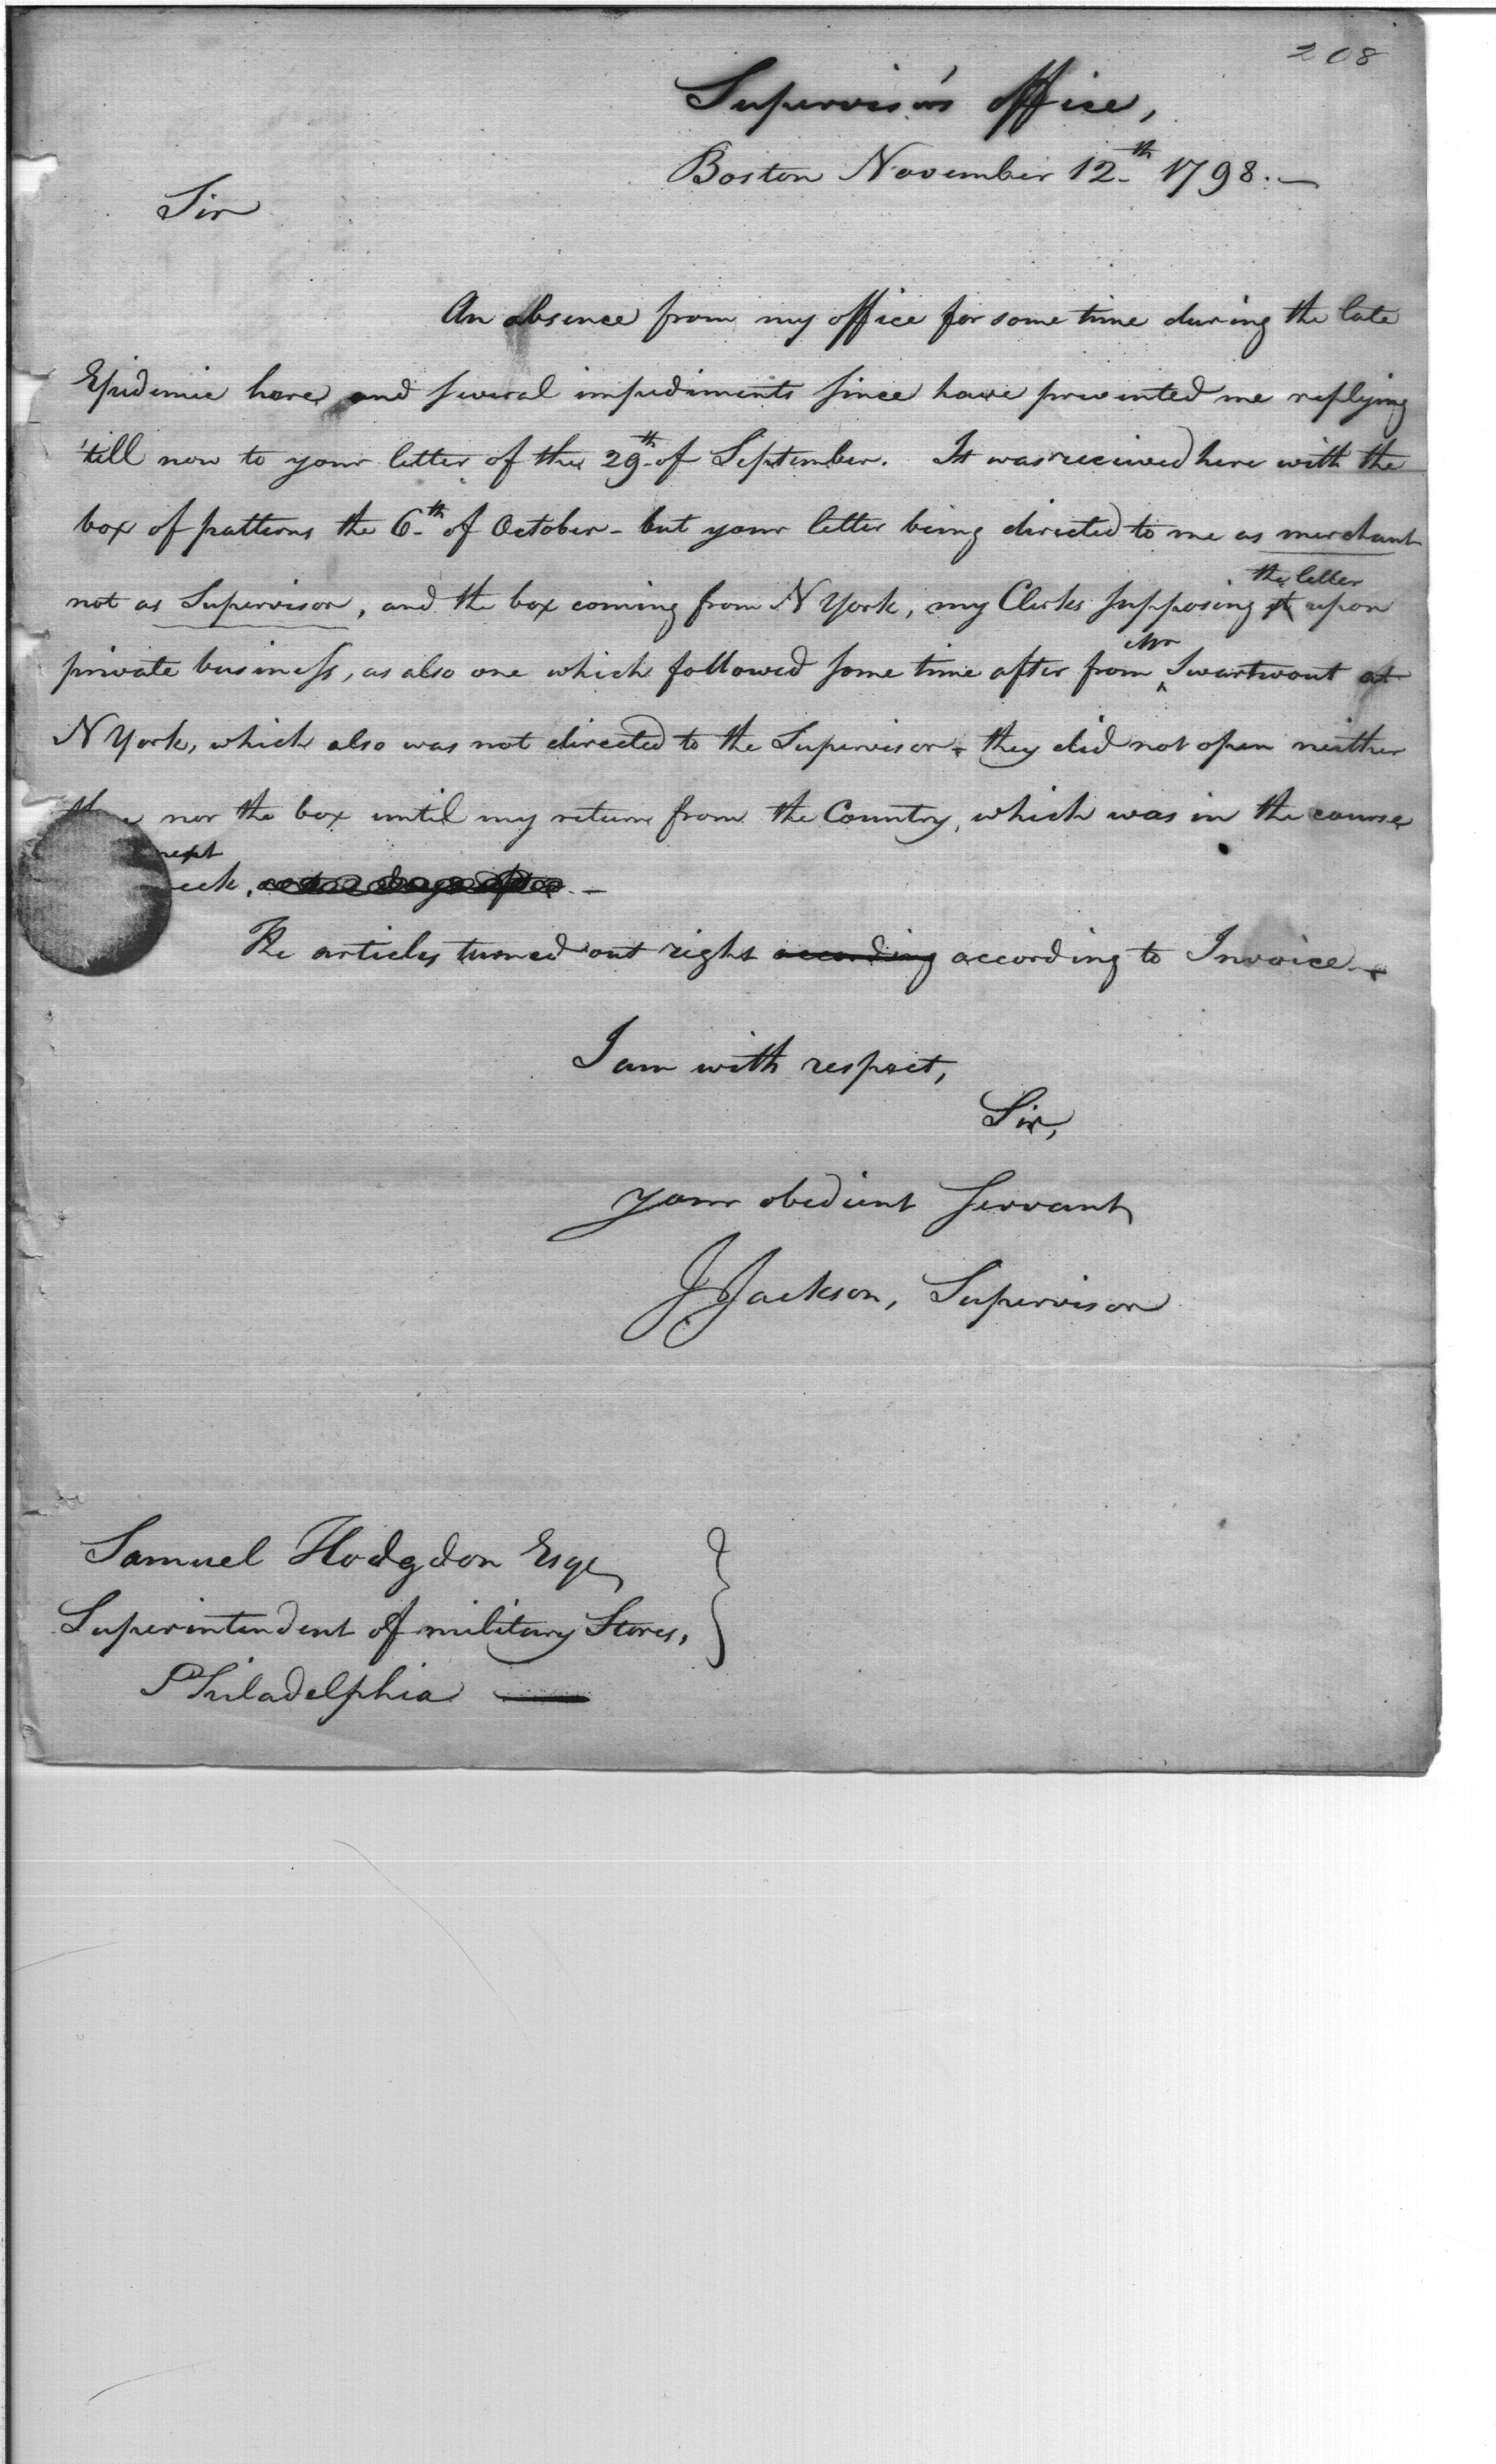 208
Supervisor's office,
Boston November 12th 1798.—
Sir
An absence from my office for some time during the late
Epidemic here, and several impediments since have prevented me replying
'till now to your letter of the 29th of September. It was received here with the
box of patterns the 6th of October - but your letter being directed to me as merchant
not as Supervisor, and the box coming from N York, my Clerks supposing it the letter upon
private business, as also one which followed some time after from Mr Swartwout at
N York, which also was not directed to the Supervisor - they did not open neither
nor the box until my return from the Country, which was in the course
next
eek. —
The articles turned out right according according to Invoice.—
I am with respect,
Sir,
your obedient Servant
J Jackson, Supervisor
Samuel Hodgdon Esqr
Superintendent of military Stores,
Philadelphia —